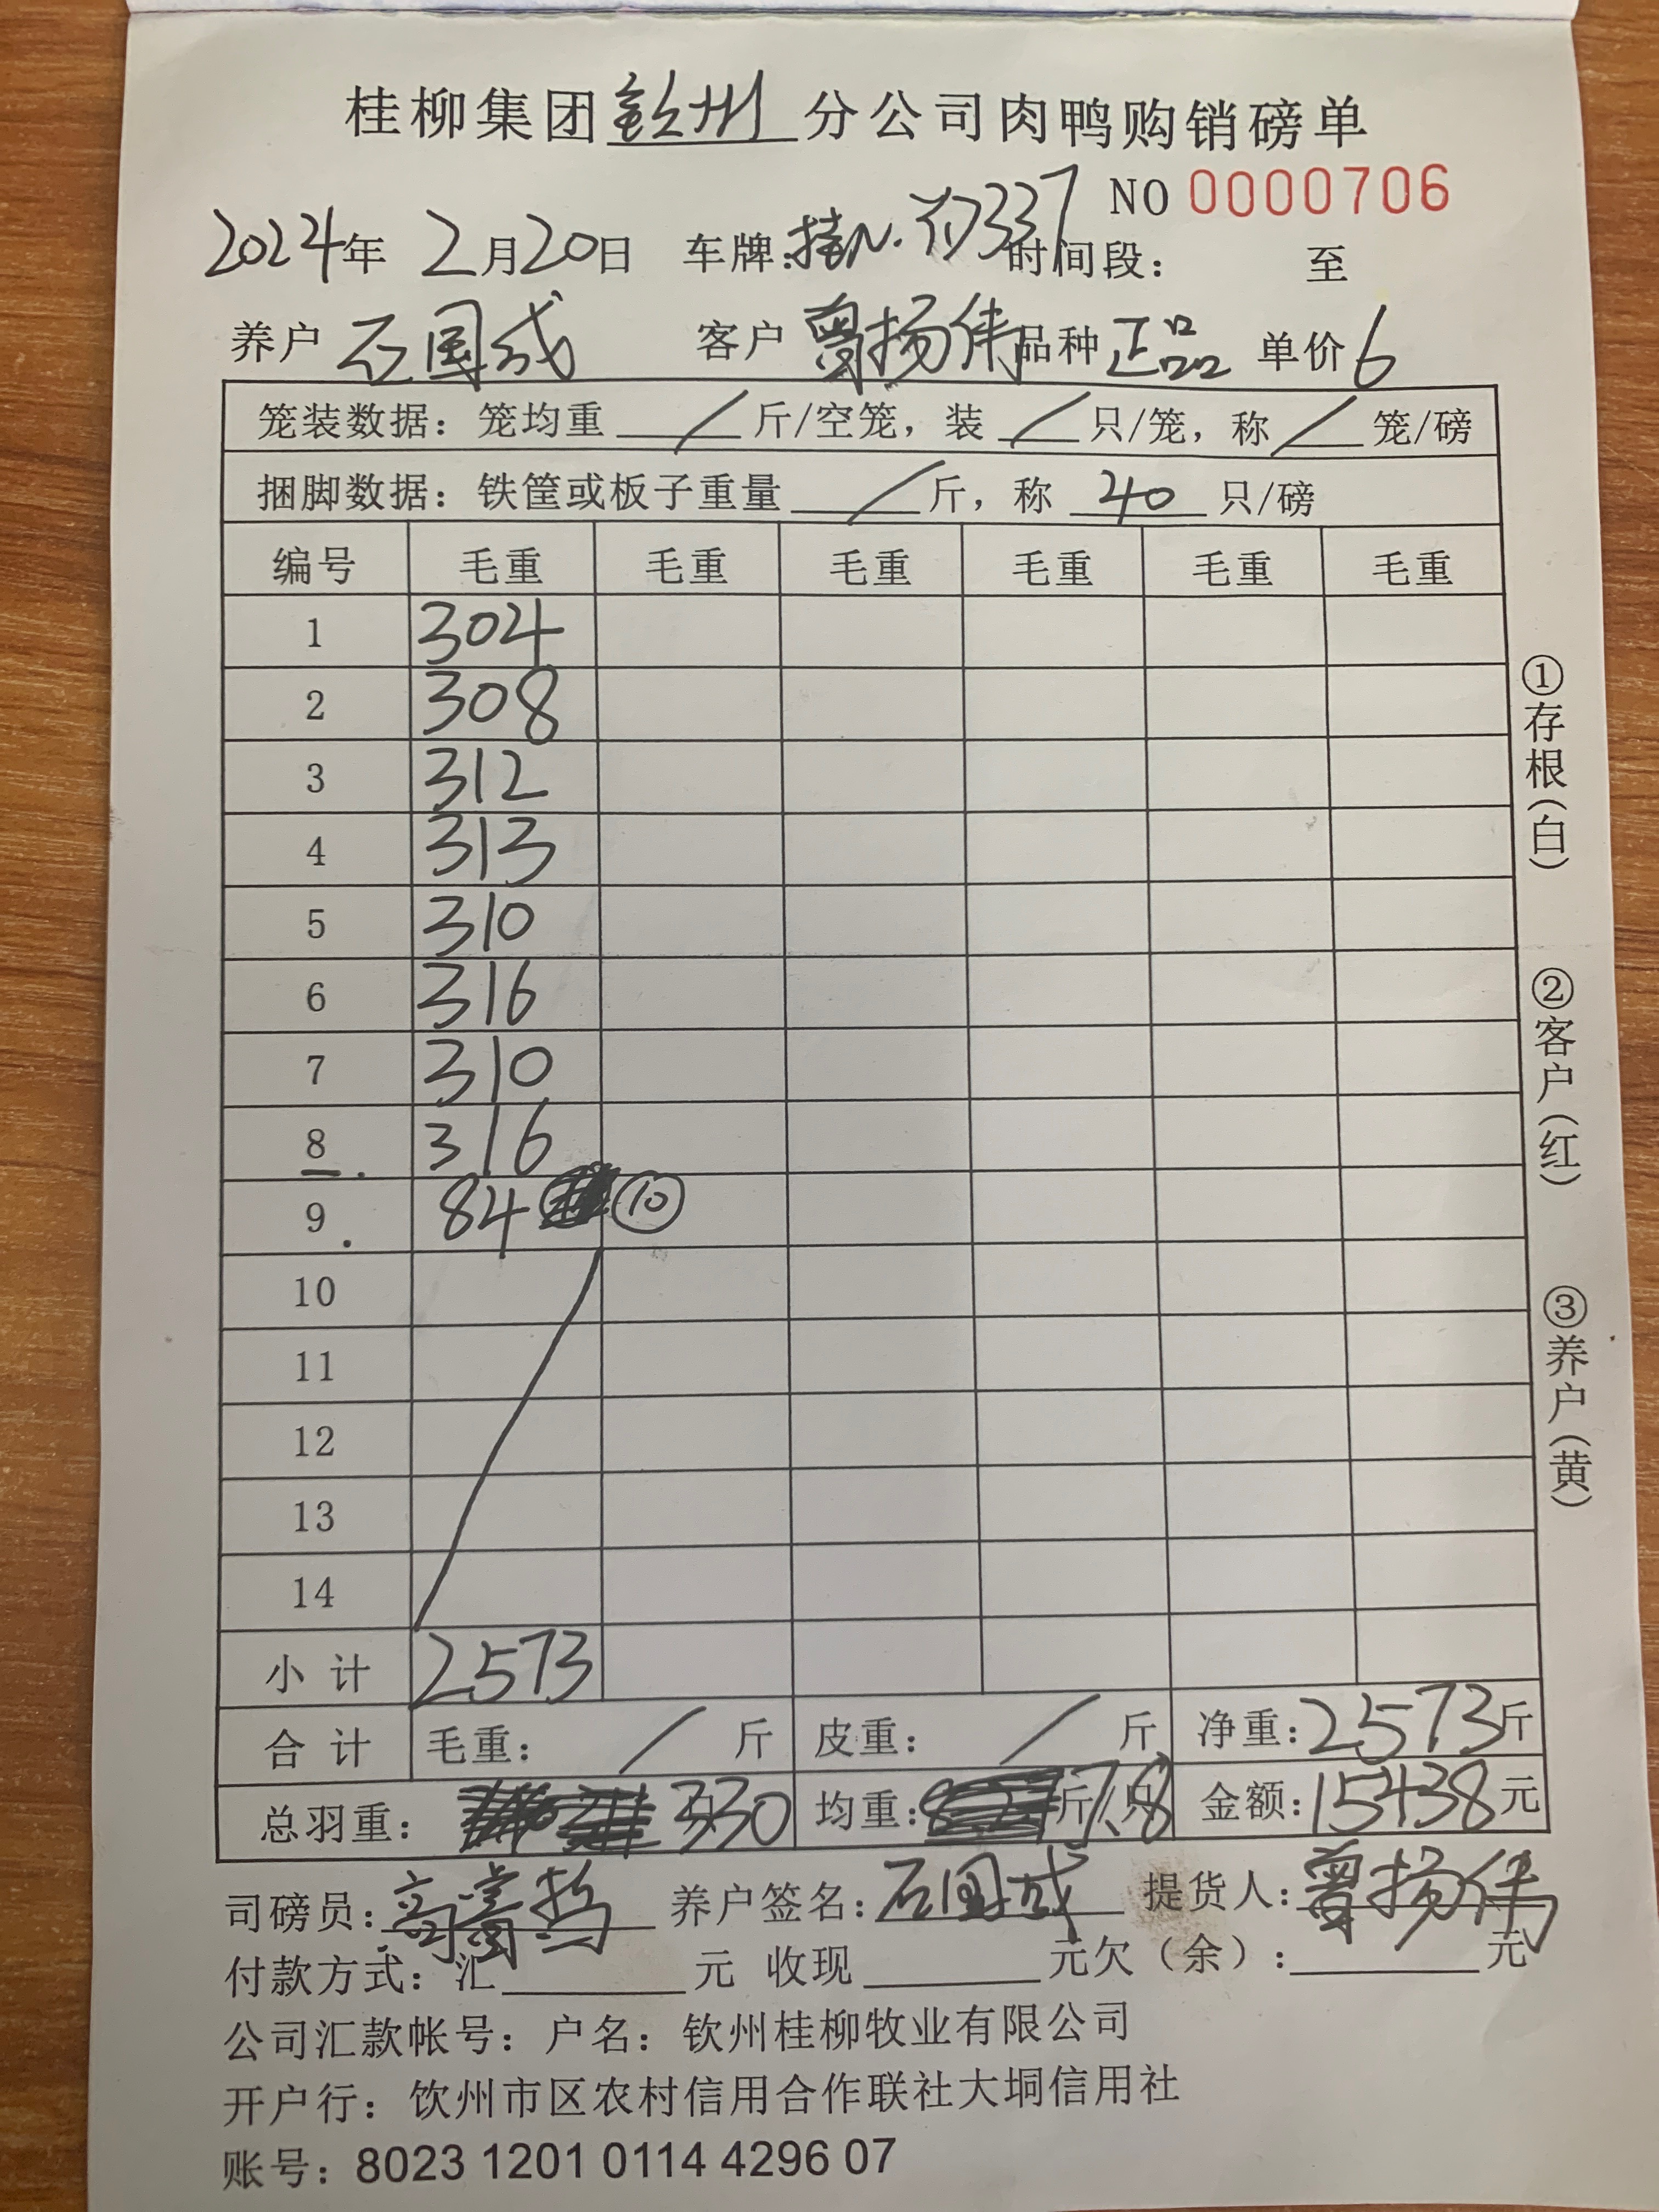 桂柳集团钦州分公司肉鸭购销磅单
NO 0000706
2024年 2月20日 车牌:桂N. D7337 时间段: 至
养户 石国成 客户 曾扬伟 品种 正品 单价 6
笼装数据: 笼均重 / 斤/空笼, 装 / 只/笼, 称 / 笼/磅
捆脚数据: 铁筐或板子重量 / 斤, 称 40 只/磅
编号 毛重 毛重 毛重 毛重 毛重 毛重
1 304
2 308
3 312
4 313
5 310
6 316
7 310
8. 316
9. 84 ⑩
10
11
12
13
14
小计 2573
合计 毛重: / 斤 皮重: / 斤 净重: 2573斤
总羽重: 330 均重: 斤/只 7.8 金额: 15438元
司磅员: 养户签名: 石国成 提货人: 曾扬伟
付款方式: 汇 元 收现 元欠(余): 元
公司汇款帐号: 户名: 钦州桂柳牧业有限公司
开户行: 钦州市区农村信用合作联社大垌信用社
账号: 8023 1201 0114 4296 07
①存根(白)
②客户(红)
③养户(黄)